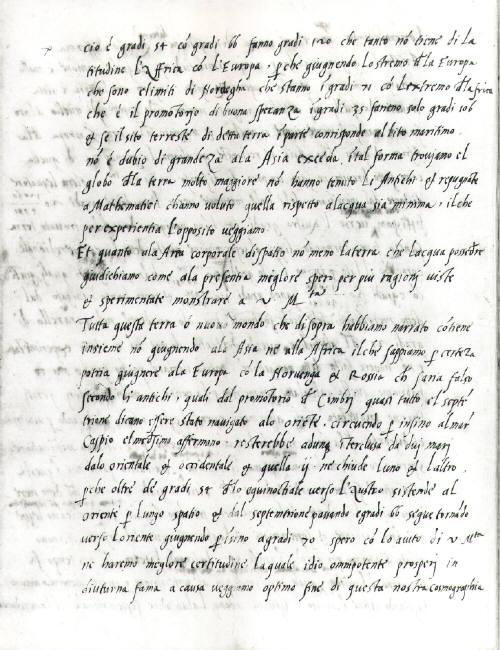 cio é gradi 54 có gradi 66 fanno gradi 120 che tanto nó tiene di la
titudine l'Affrica có l'Europa, pche giugnendo lo stremo dla Europa
che sono e limiti di Norvegha che stanno i gradi 71 có l'extremo dla Africa
che é il promotorio di buona speranza i gradi 35 faranno solo gradi 106
et se il sito terreste di detto terra i parte corrisponde al lito maritimo.
nó é dubio di grandeza ala Asia exceda, i tal forma troviamo el
globo dla terra molto maggiore nó hanno tenuto li Antichi et repugnate
a Mathematici chianno voluto quella rispetto alacqua sia minima, ilche
per experientia l'opposito veggiamo
Et quanto ala Area corporale di spatio nó meno la terra che lacqua possedere
giudichiamo come ala presentia migliore spero per piu ragioni viste
et sperimentate monstrare a v Mta
Tutta questa terra ó nuovo mondo che di sopra habbiamo narrato cótiene
insieme nó giugnendo ala Asia ne alla Africa ilche sappiamo p certeza
potria giugnere ala Europa có la Norvegia et Rossia ch saria falso
secondo li antichi, quali dal promotorio d Cimbri quasi tutto el septé
trione dicano essere stato navigato alo oriéte, circuendo p insino al mar
Caspio el medesimo affermino. resterebbe adunq3 iterclusa da duj mari
dalo orientale et occidentale et quella ij ne chiude luno et laltro,
pche oltre de gradi 54 dlo equinoctiale verso l'Austro si stende al
oriente p lungo spatio et dal septemtrione passando e gradi 66 segue tornádo
verso loriente giugnendo pisino a gradi 70 spero có lo aiuto di v Mtta
ne haremo meglore certitudine la quale idio omnipotente prosperj in
diuturna fama a causa veggiamo optimo fine di questa nostra cosmographia